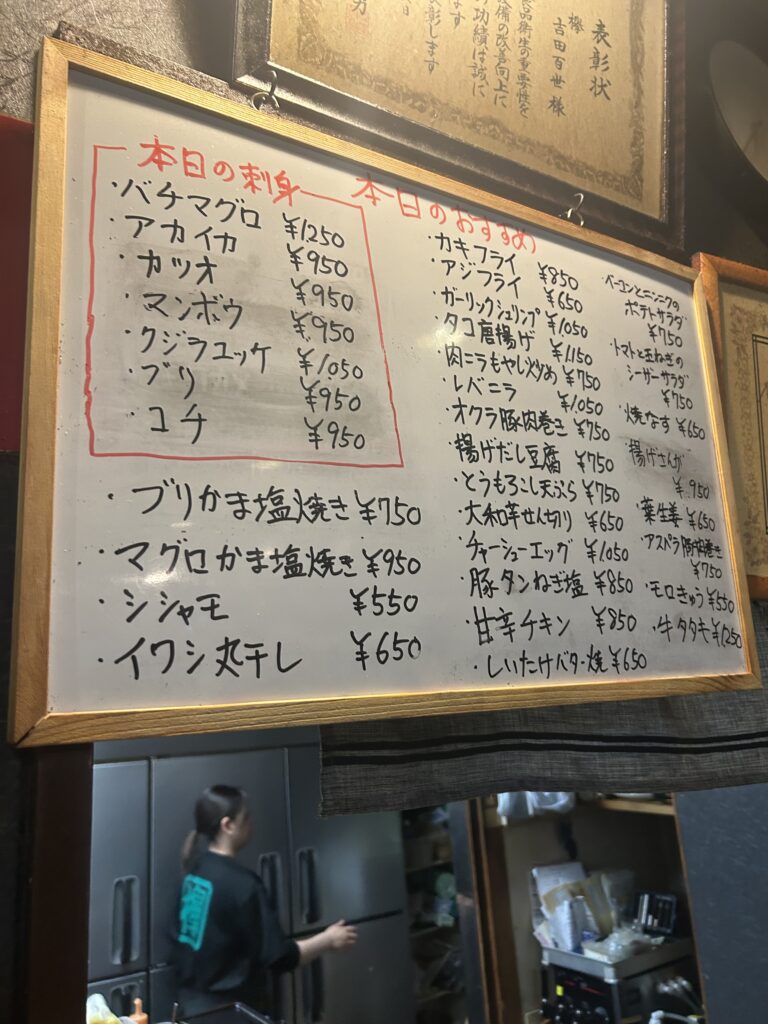 表彰状
吉田百世様
品衛生の重要性を
備の改善向上に
の功績は誠に
ます
彰します
本日の刺身
・バチマグロ ¥1250
アカイカ ¥950
カツオ ¥950
マンボウ ¥950
クジラユッケ ¥1050
ブリ ¥950
コチ ¥950
・ブリかま塩焼き ¥750
・マグロかま塩焼き ¥950
・シシャモ ¥550
・イワシ丸干し ¥650
本日のおすすめ
・カキフライ ¥850
・アジフライ ¥650
・ガーリックシュリンプ ¥1050
・タコ唐揚げ ¥1150
・肉ニラもやし炒め ¥750
・レバニラ ¥1050
・オクラ豚肉巻き ¥750
・揚げだし豆腐 ¥750
・とうもろこし天ぷら ¥750
・大和芋せん切り ¥650
・チャーシューエッグ ¥1050
・豚タンねぎ塩 ¥850
・甘辛チキン ¥850
・しいたけバター焼 ¥650
・ベーコンとニンニクの
ポテトサラダ
¥750
・トマトと玉ねぎの
シーザーサラダ
¥750
・焼なす ¥650
・揚げさんが
¥950
・葉生姜 ¥650
・アスパラ豚肉巻き
¥750
・モロきゅう ¥550
・牛タタキ ¥1250